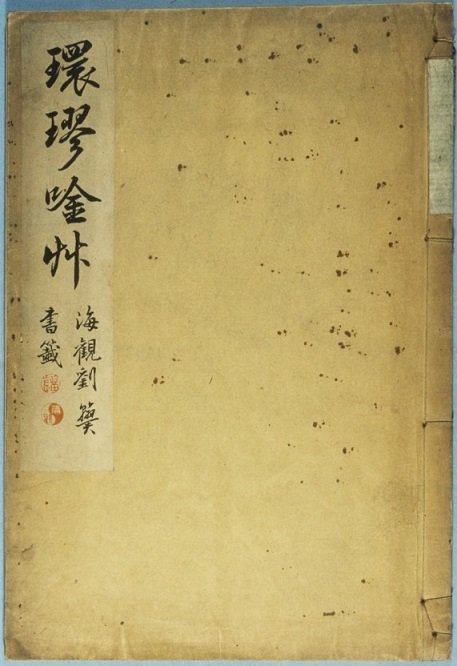 環璆唫艸
海観劉
書籤